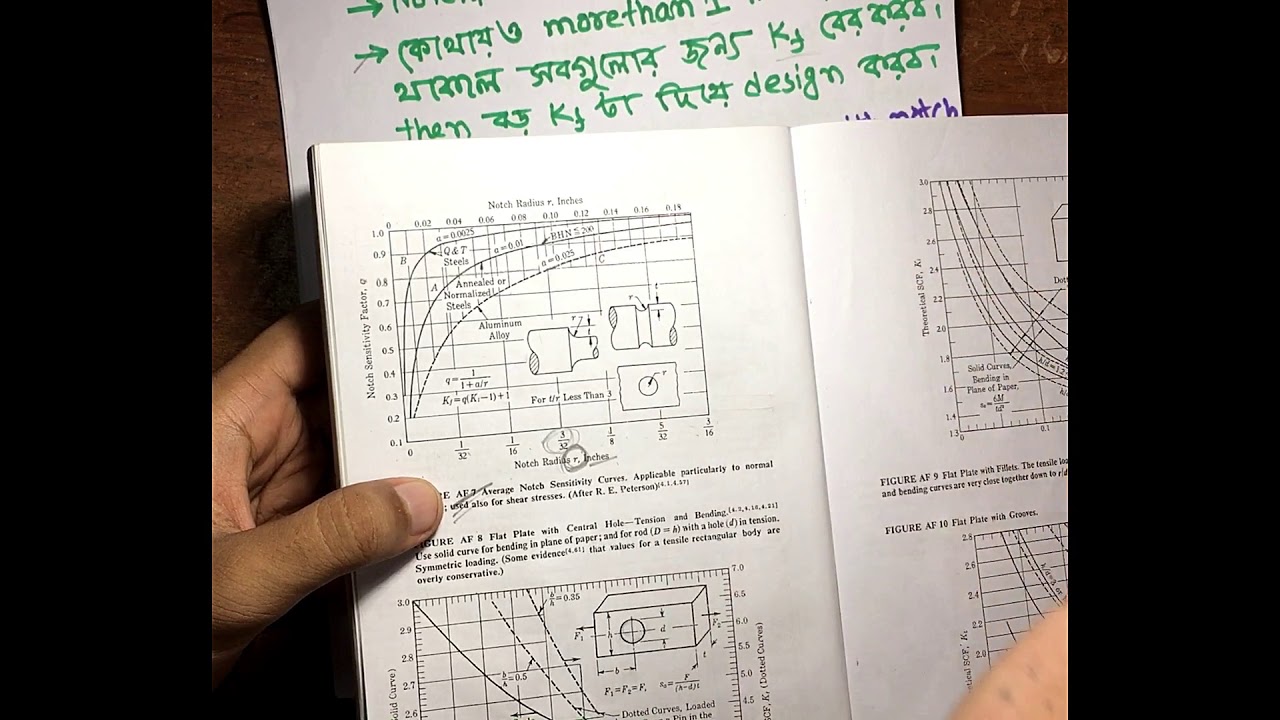 → কোথায়ও more than 1
থাকলে সবগুলোর জন্য Kf বের করব।
then বড় Kf টা দিয়ে design করব।
match
Notch Radius r, Inches
0 0.02 0.04 0.06 0.08 0.10 0.12 0.14 0.16 0.18
Notch Sensitivity Factor, q
1.0
0.9
0.8
0.7
0.6
0.5
0.4
0.3
0.2
0.1
a=0.0025
B
Q & T
Steels
a=0.01
BHN ≦ 200
a=0.025
C
A
Annealed or
Normalized
Steels
Aluminum
Alloy
r
t
r
t
r
q = 1/(1+a/r)
Kf = q(Kt−1)+1
For t/r Less Than 3
0 1/32 1/16 3/32 1/8 5/32 3/16
Notch Radius r, Inches
RE AF 7 Average Notch Sensitivity Curves. Applicable particularly to normal
; used also for shear stresses. (After R. E. Peterson)[4.1,4.57]
IGURE AF 8 Flat Plate with Central Hole—Tension and Bending.[4.2,4.16,4.21]
Use solid curve for bending in plane of paper; and for rod (D = h) with a hole (d) in tension.
Symmetric loading. (Some evidence[4.61] that values for a tensile rectangular body are
overly conservative.)
3.0
2.9
2.8
2.7
2.6
olid Curve)
b/h=0.35
b/h=0.5
F1
h
d
F2
b
t
F1=F2=F, s0=F/(h-d)t
Dotted Curves, Loaded
Pin in the
7.0
6.5
6.0
5.5
5.0
4.5
SCF, Kt (Dotted Curves)
Theoretical SCF, Kt
3.0
2.8
2.6
2.4
2.2
2.0
1.8
1.6
1.4
1.3
0 0.1
Dot
Solid Curves,
Bending in
Plane of Paper,
s0=6M/td²
FIGURE AF 9 Flat Plate with Fillets. The tensile loa
and bending curves are very close together down to r/d
FIGURE AF 10 Flat Plate with Grooves.
2.8
2.6
2.4
2.2
2.0
ical SCF, Kt